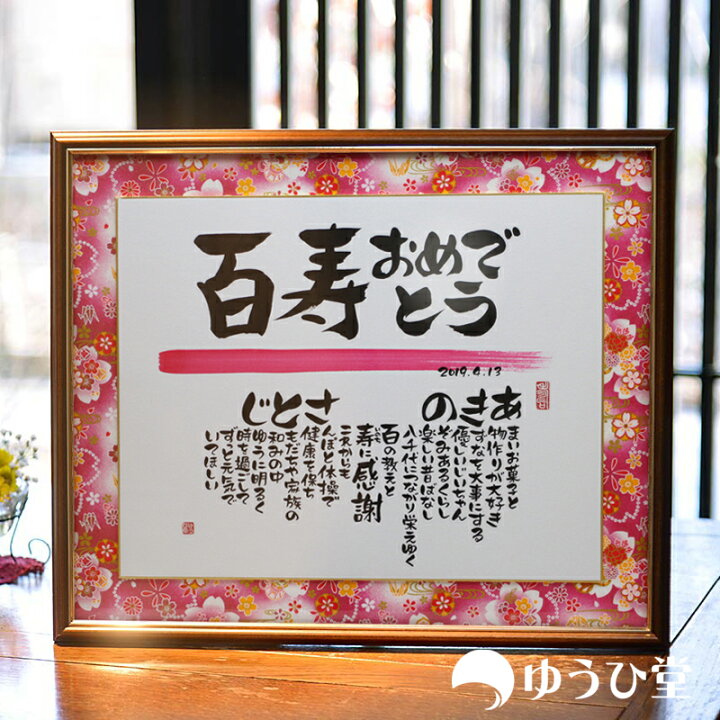 百寿おめで
とう
2019.4.13
あまいお菓子と
物作りが大好き
きずなを大事にする
優しいじいちゃん
のぞみあるくらし
楽しい昔ばなし
八千代につながり栄えゆく
百の教えと
寿に感謝
これからも
さんぽと体操で
健康を保ち
ともだちや家族の
和みの中
じゆうに明るく
時を過ごして
ずっと元気で
いてほしい
ゆうひ堂